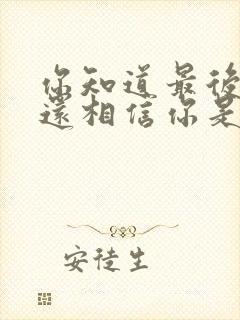 你知道最後
還相信你是
安徒生